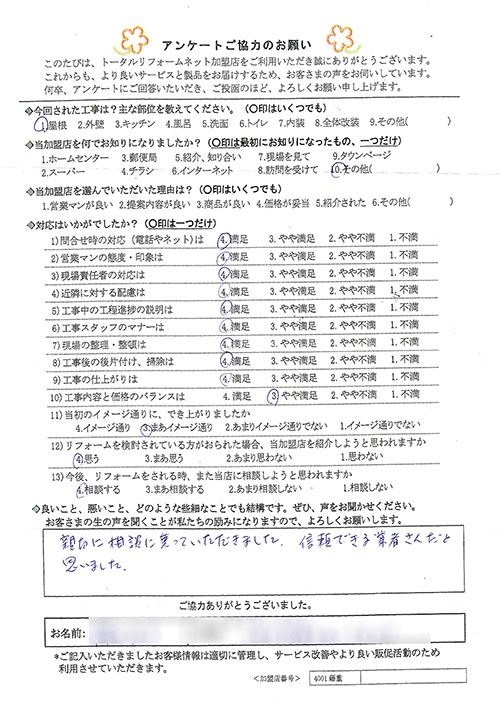 アンケートご協力のお願い
このたびは、トータルリフォームネット加盟店をご利用いただき誠にありがとうございます。
これからも、より良いサービスと製品をお届けするため、お客さまの声をお伺いしています。
何卒、アンケートにご回答いただき、ご投函のほど、よろしくお願い申し上げます。
◆今回された工事は?主な部位を教えてください。(〇印はいくつでも)
1.屋根 2.外壁 3.キッチン 4.風呂 5.洗面 6.トイレ 7.内装 8.全体改装 9.その他( )
◆当加盟店を何でお知りになりましたか?(〇印は最初にお知りになったもの、一つだけ)
1.ホームセンター 3.郵便局 5.紹介、知り合い 7.現場を見て 9.タウンページ
2.スーパー 4.チラシ 6.インターネット 8.訪問を受けて 10.その他( )
◆当加盟店を選んでいただいた理由は?(〇印はいくつでも)
1.営業マンが良い 2.提案内容が良い 3.商品が良い 4.価格が妥当 5.紹介された 6.その他( )
◆対応はいかがでしたか?(〇印は一つだけ)
1)問合せ時の対応(電話やネット)は 4.満足 3.やや満足 2.やや不満 1.不満
2)営業マンの態度・印象は 4.満足 3.やや満足 2.やや不満 1.不満
3)現場責任者の対応は 4.満足 3.やや満足 2.やや不満 1.不満
4)近隣に対する配慮は 4.満足 3.やや満足 2.やや不満 1.不満
5)工事中の工程進捗の説明は 4.満足 3.やや満足 2.やや不満 1.不満
6)工事スタッフのマナーは 4.満足 3.やや満足 2.やや不満 1.不満
7)現場の整理・整頓は 4.満足 3.やや満足 2.やや不満 1.不満
8)工事後の後片付け、掃除は 4.満足 3.やや満足 2.やや不満 1.不満
9)工事の仕上がりは 4.満足 3.やや満足 2.やや不満 1.不満
10)工事内容と価格のバランスは 4.満足 3.やや満足 2.やや不満 1.不満
11)当初のイメージ通りに、でき上がりましたか
4.イメージ通り 3.まあイメージ通り 2.あまりイメージ通りでない 1.イメージ通りでない
12)リフォームを検討されている方がおられた場合、当加盟店を紹介しようと思われますか
4)思う 3.まあ思う 2.あまり思わない 1.思わない
13)今後、リフォームをされる時、また当店に相談しようと思われますか
4.相談する 3.まあ相談する 2.あまり相談しない 1.相談しない
◆良いこと、悪いこと、どのような些細なことでも結構です。ぜひ、声をお聞かせください。
お客さまの生の声を聞くことが私たちの励みになりますので、よろしくお願いします。
親切に相談に乗っていただきました。信頼できる業者さんだと
思いました。
ご協力ありがとうございました。
お名前:
*ご記入いただきましたお客様情報は適切に管理し、サービス改善やより良い販促活動のため
利用させていただきます。
<加盟店番号> 4001 藤重